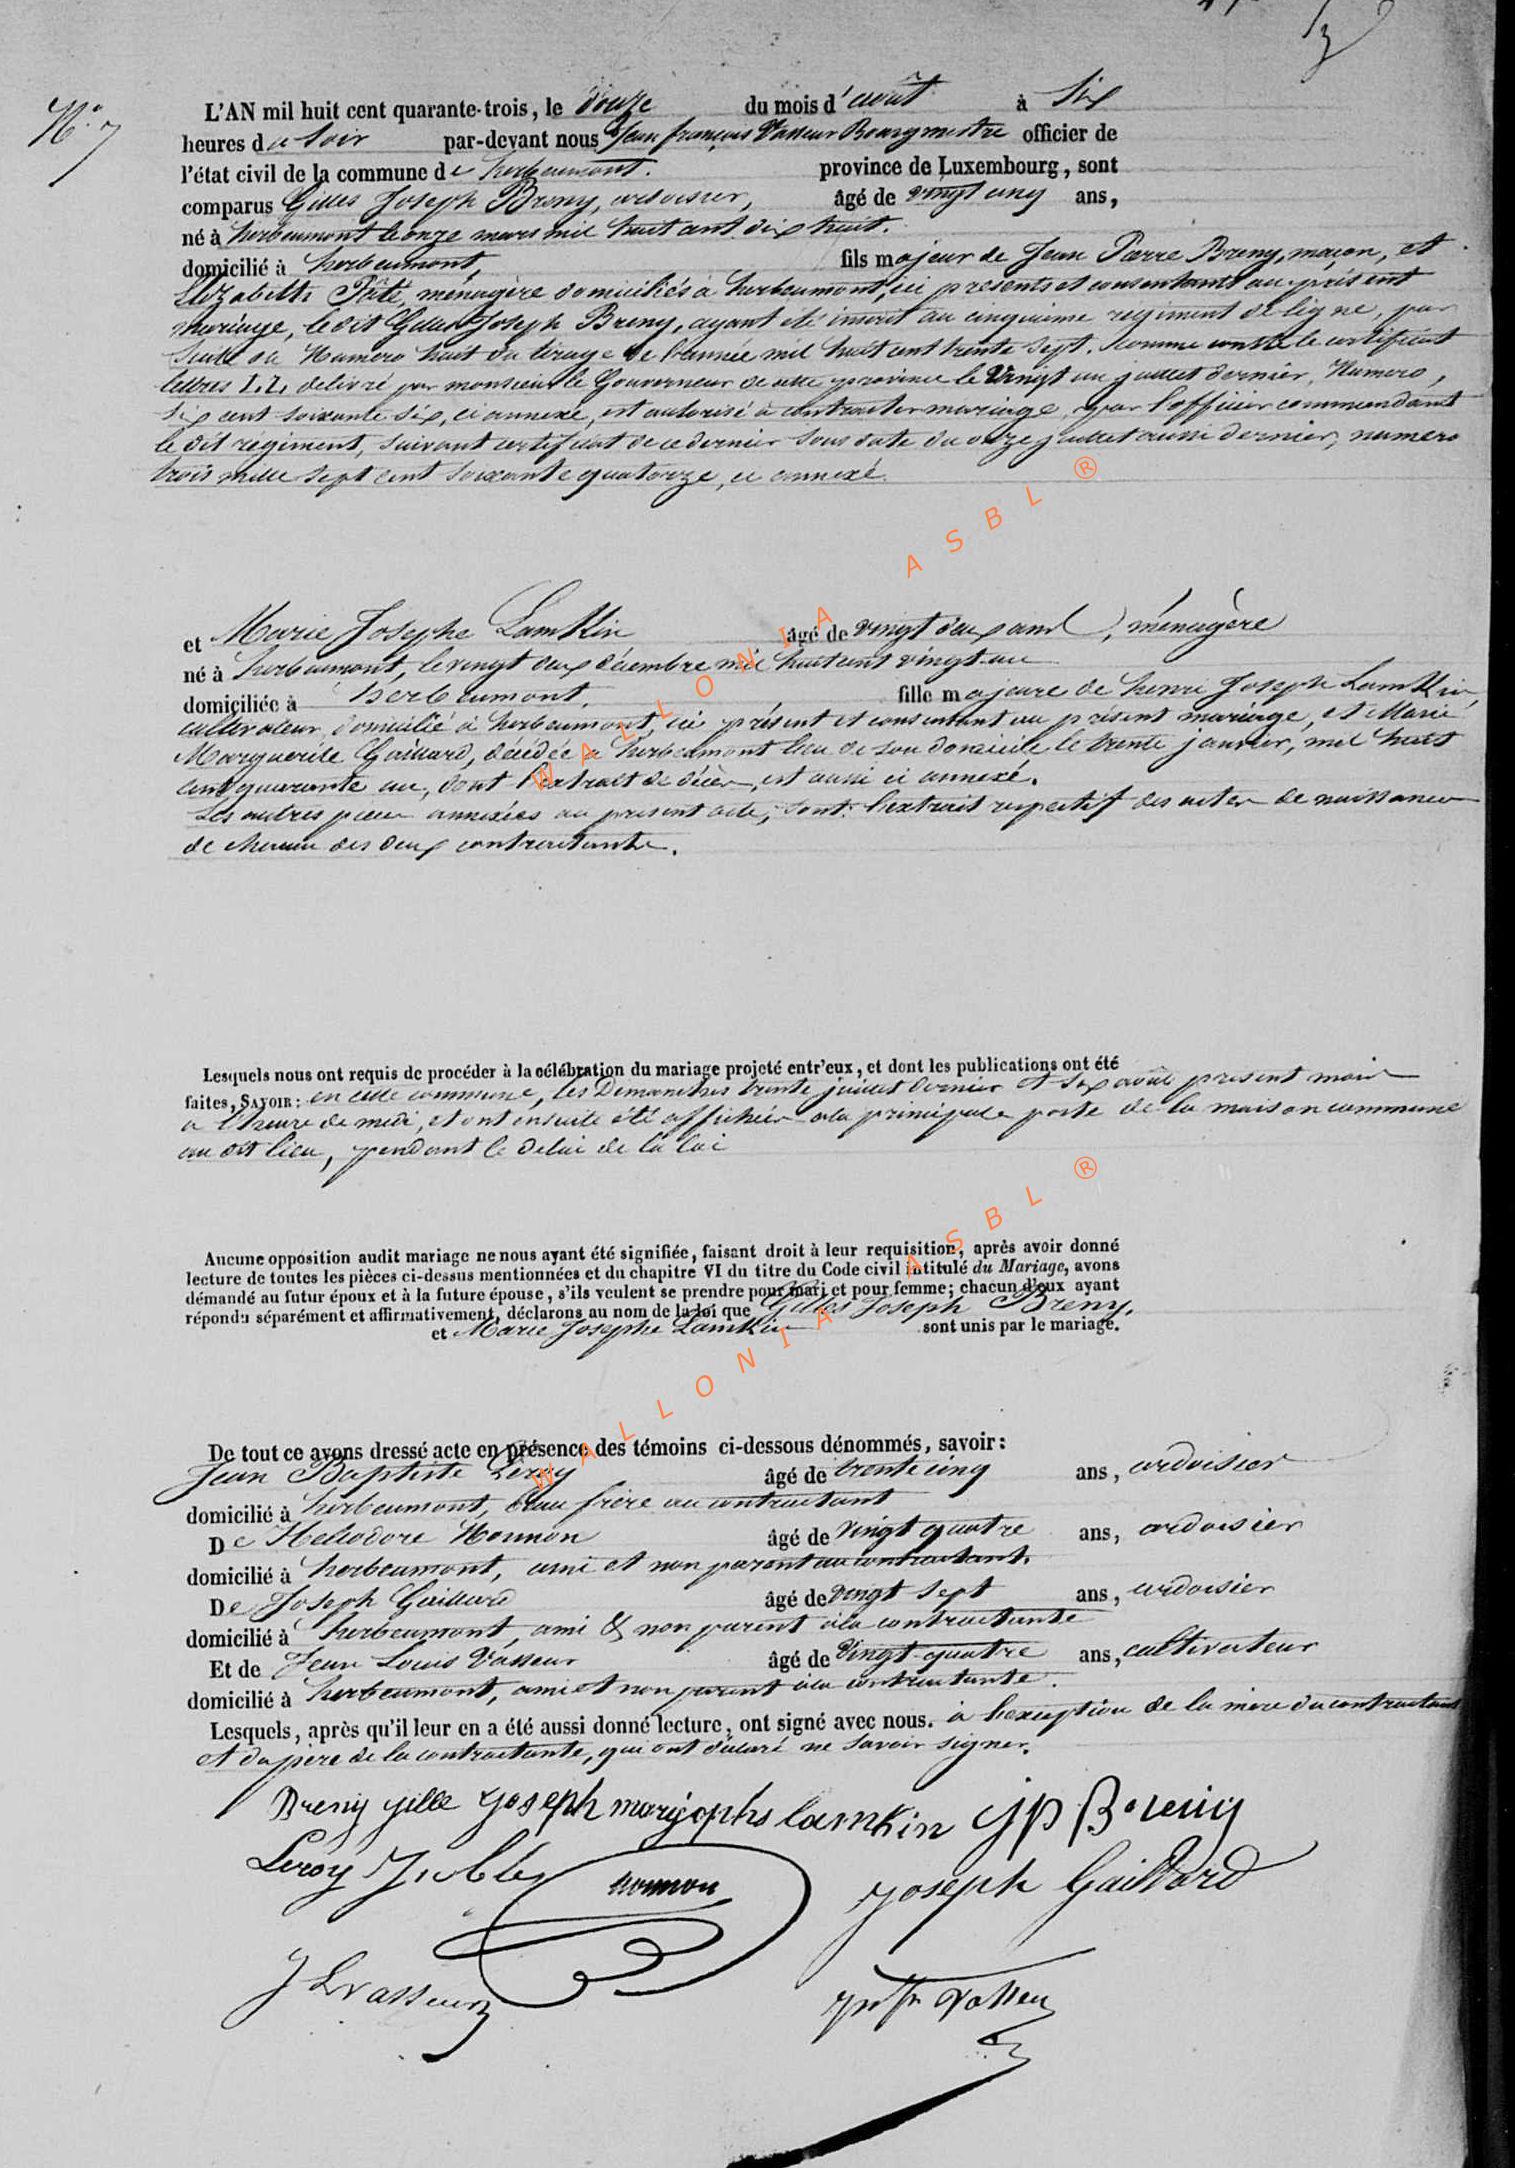 N° 7
L'AN mil huit cent quarante-trois, le douze du mois d'août à six
heures du soir par-devant nous Jean françois Vasseur Bourgmestre officier de
l'état civil de la commune de herbeumont. province de Luxembourg, sont
comparus Gilles Joseph Breny, ardoisier, âgé de vingt cinq ans,
né à herbeumont le onze mars mil huit cent dix huit.
domicilié à herbeumont, fils majeur de Jean Pierre Breny, maçon, et
Elizabeth Pâté, ménagère domiciliés à herbeumont, ici présents et consentants au présent
mariage, le dit Gilles Joseph Breny, ayant été inscrit au cinquième régiment de ligne, par
suite du Numero huit du tirage de l'année mil huit cent trente sept. comme conste le certificat
lettres I.I. délivré par monsieur le Gouverneur de cette province le Vingt un juillet dernier, Numero,
six cent soixante six, ci annexé, est autorisé à contracter mariage, par l'officier commandant
le dit régiment, suivant certificat de ce dernier sous date du onze juillet aussi dernier, numero
trois mille sept cent soixante quatorze, ci annexé.
et Marie Josephe Lamkin âgé de vingt deux ans, ménagère
né à herbeumont, le vingt deux décembre mil huit cent vingt-un
domiciliée à herbeumont. fille majeure de henri Joseph Lamkin,
cultivateur, domicilié à herbeumont, ici présent et consentant au présent mariage, et Marie
Marguerite Gaillard, décédée à herbeumont lieu de son domicile, le trente janvier, mil huit
cent quarante un, dont l'extrait de décès, est aussi ci annexé.
Les autres pièces annexées au présent acte, sont: l'extrait respectif des actes de naissances
de chacun des deux contractants.
Lesquels nous ont requis de procéder à la célébration du mariage projeté entr'eux, et dont les publications ont été
faites, SAVOIR: en cette commune, les Dimanches trente juillet dernier et six août présent mois
a l'heure de midi, et ont ensuite été affichées a la principale porte de la maison commune
au dit lieu, pendant le délai de la loi
Aucune opposition audit mariage ne nous ayant été signifiée, faisant droit à leur requisition, après avoir donné
lecture de toutes les pièces ci-dessus mentionnées et du chapitre VI du titre du Code civil intitulé du Mariage, avons
démandé au futur époux et à la future épouse, s'ils veulent se prendre pour mari et pour femme; chacun d'eux ayant
répondu séparément et affirmativement, déclarons au nom de la loi que Gilles Joseph Breny.
et Marie Josephe Lamkin sont unis par le mariage.
De tout ce avons dressé acte en présence des témoins ci-dessous dénommés, savoir:
Jean Baptiste Leroy âgé de trente cinq ans, ardoisier
domicilié à herbeumont, beau frère au contractant
De Heliodore Nonnon âgé de vingt quatre ans, ardoisier
domicilié à herbeumont, ami et non parent au contractant.
De Joseph Gaillard âgé de vingt sept ans, ardoisier
domicilié à herbeumont, ami & non parent à la contractante
Et de Jean Louis Vasseur âgé de vingt-quatre ans, cultivateur
domicilié à herbeumont, ami et non parent à la contractante.
Lesquels, après qu'il leur en a été aussi donné lecture, ont signé avec nous. à l'exception de la mère du contractant
et du père de la contractante, qui ont déclaré ne savoir signer.
Breny gille joseph lamkin J P Breny
Leroy nonnon Joseph Gaillard
J L vasseur Vasseur
WALLONIA ASBL ®
WALLONIA ASBL ®